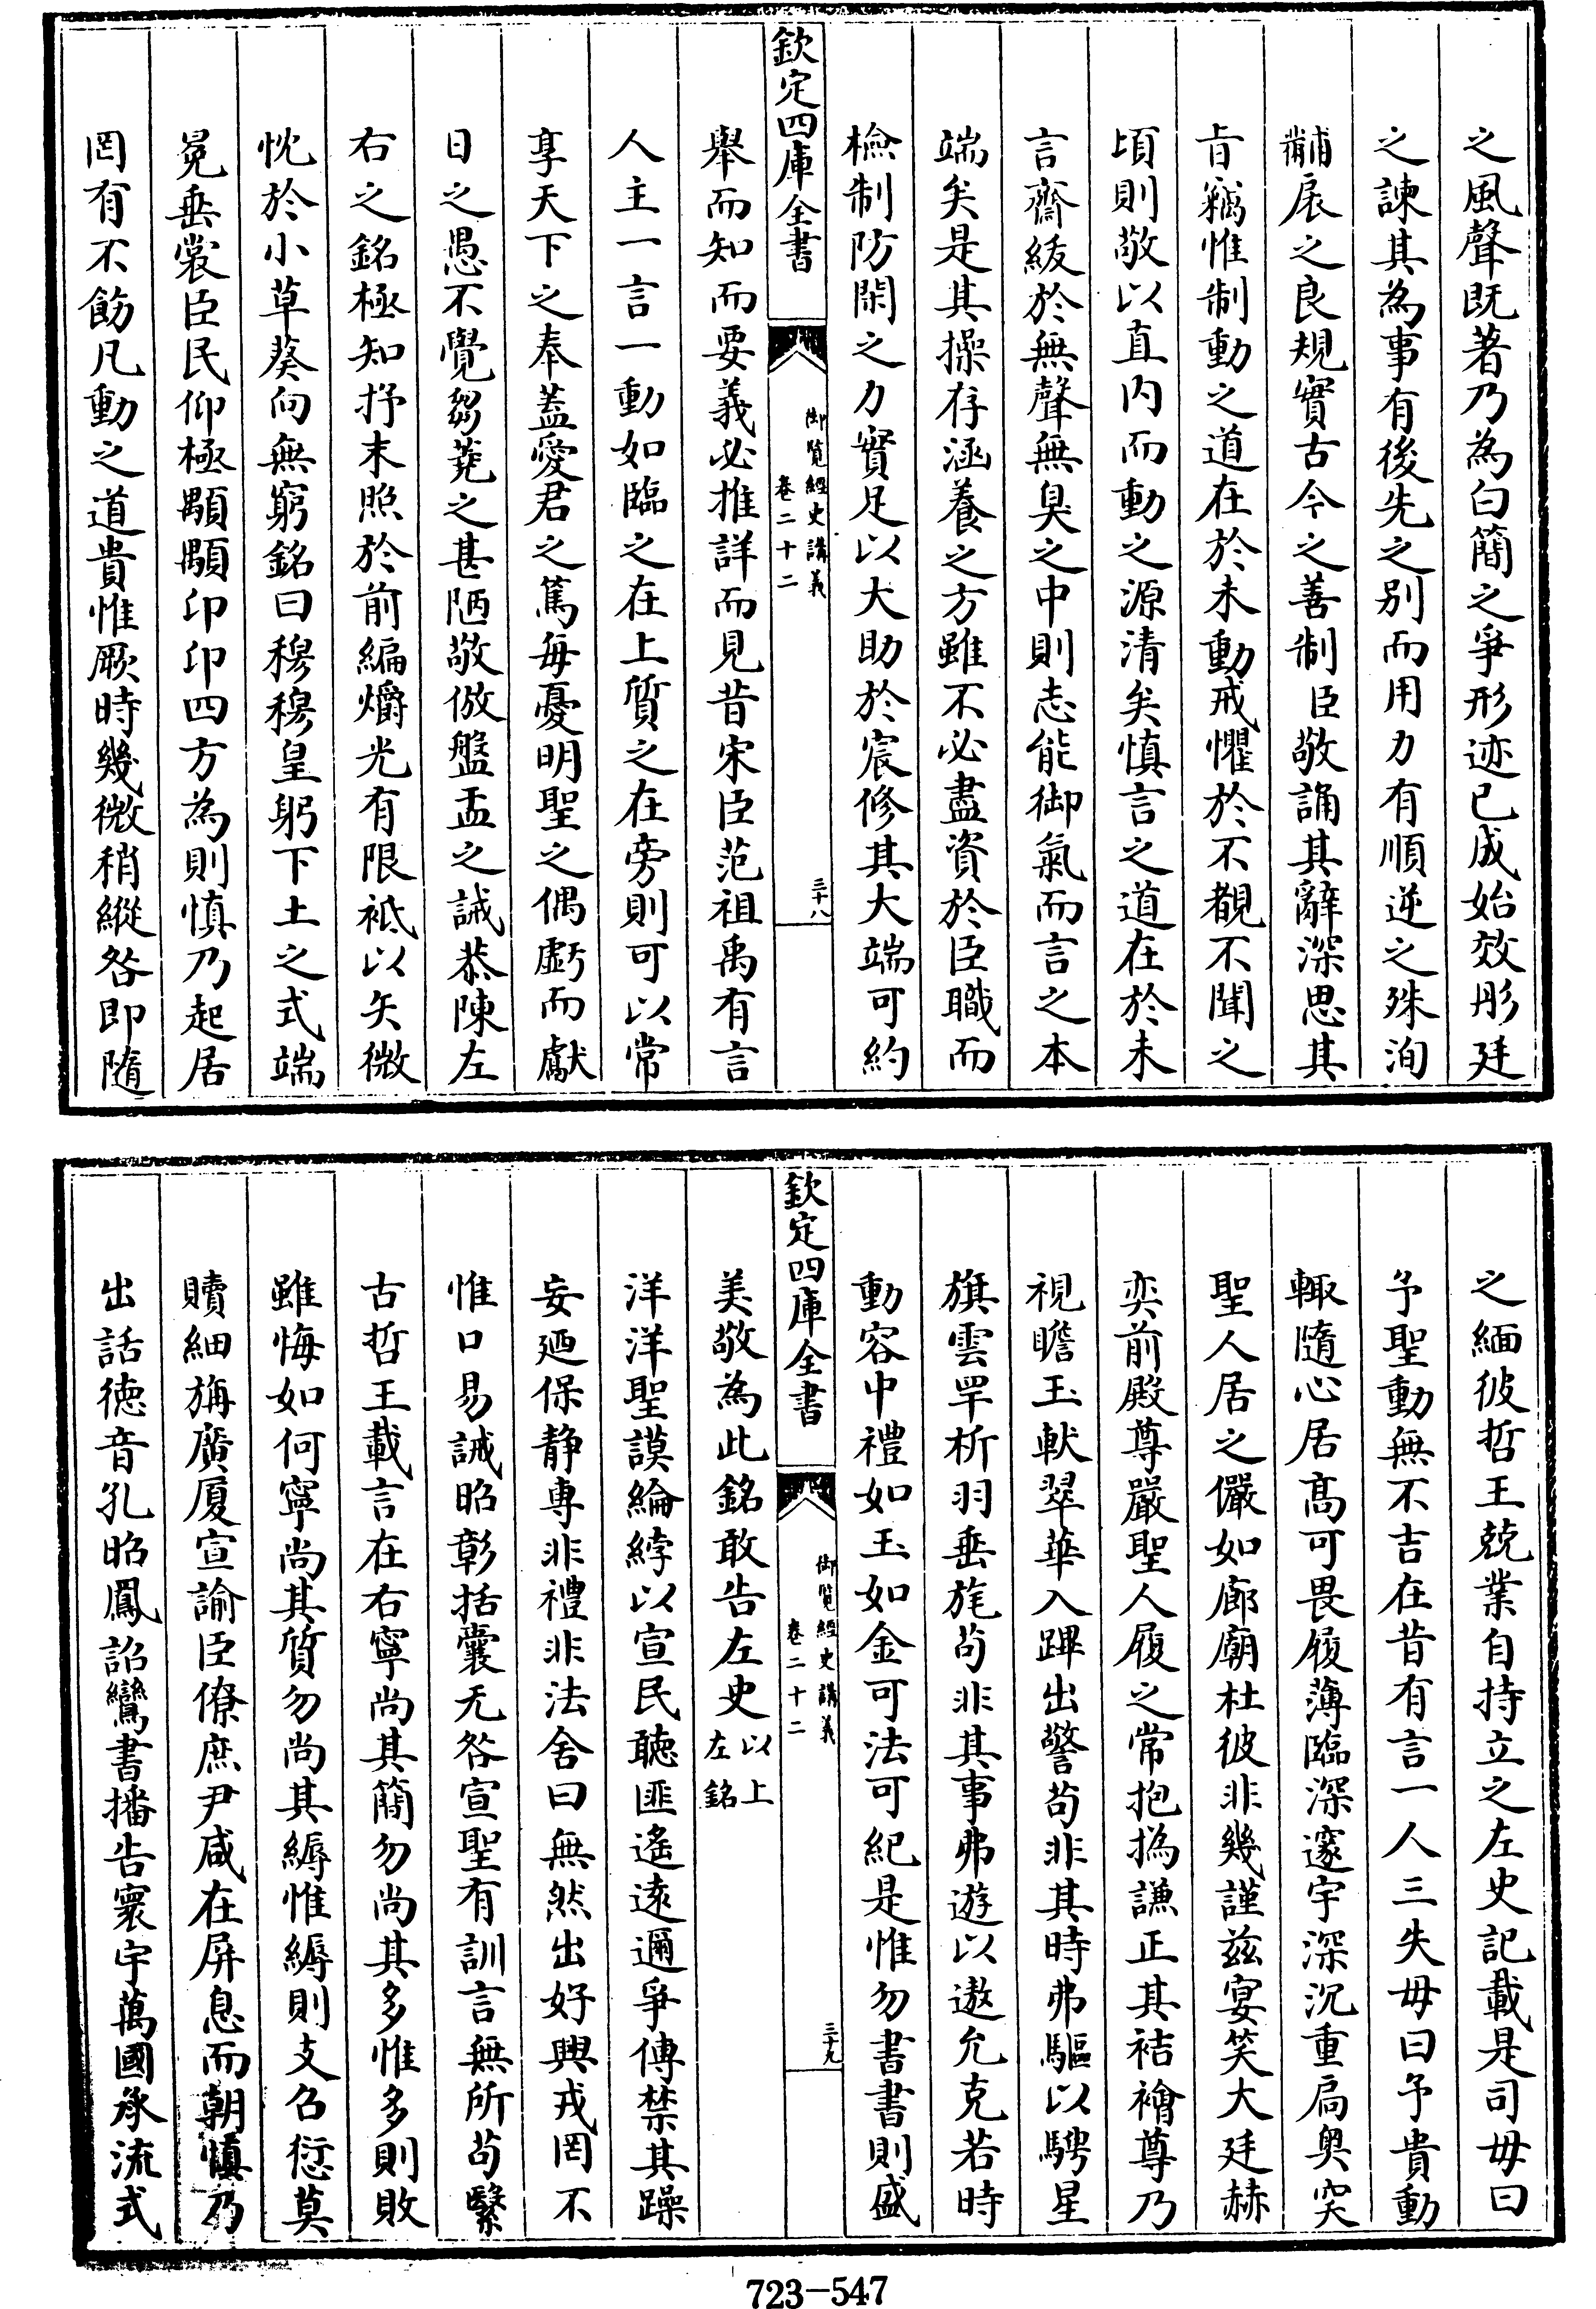 之風聲既著乃為白簡之爭形迹已成始效彤廷
之諫其為事有後先之别而用力有順逆之殊洵
黼扆之良規實古今之善制臣敬誦其辭深思其
旨竊惟制動之道在於未動戒懼於不覩不聞之
頃則敬以直内而動之源清矣慎言之道在於未
言齋緩於無聲無臭之中則志能御氣而言之本
端矣是其操存涵養之方雖不必盡資於臣職而
檢制防閑之力實足以大助於宸修其大端可約
欽定四庫全書
御覽經史講義
卷二十二
三十八
舉而知而要義必推詳而見昔宋臣范祖禹有言
人主一言一動如臨之在上質之在旁則可以常
享天下之奉蓋愛君之篤每憂明聖之偶虧而獻
日之愚不覺芻蕘之甚陋敬倣盤盂之誡恭陳左
右之銘極知抒末照於前編爝光有限祇以矢微
忱於小草葵向無窮銘曰穆穆皇躬下土之式端
冕垂裳臣民仰極顒顒卬卬四方為則慎乃起居
罔有不飭凡動之道貴惟厥時幾微稍縱咎即隨
之緬彼哲王兢業自持立之左史記載是司毋曰
予聖動無不吉在昔有言一人三失毋曰予貴動
輒隨心居高可畏履薄臨深邃宇深沉重扃奥突
聖人居之儼如廊廟杜彼非幾謹兹宴笑大廷赫
奕前殿尊嚴聖人履之常抱撝謙正其袺襘尊乃
視瞻玉軑翠華入蹕出警苟非其時弗驅以騁星
旗雲罕析羽垂旄苟非其事弗遊以遨允克若時
動容中禮如玉如金可法可紀是惟勿書書則盛
欽定四庫全書
御覽經史講義
卷二十二
三十九
美敬為此銘敢告左史以上左銘
洋洋聖謨綸綍以宣民聽匪遙遠邇爭傳禁其躁
妄廼保静專非禮非法舍曰無然出好興戎罔不
惟口易誡昭彰括囊无咎宣聖有訓言無所苟繄
古哲王載言在右寧尚其簡勿尚其多惟多則敗
雖悔如何寧尚其質勿尚其縟惟縟則支召愆莫
贖細旃廣厦宣諭臣僚庶尹咸在屏息而朝慎乃
出話德音孔昭鳳詔鸞書播告寰宇萬國承流式
723-547